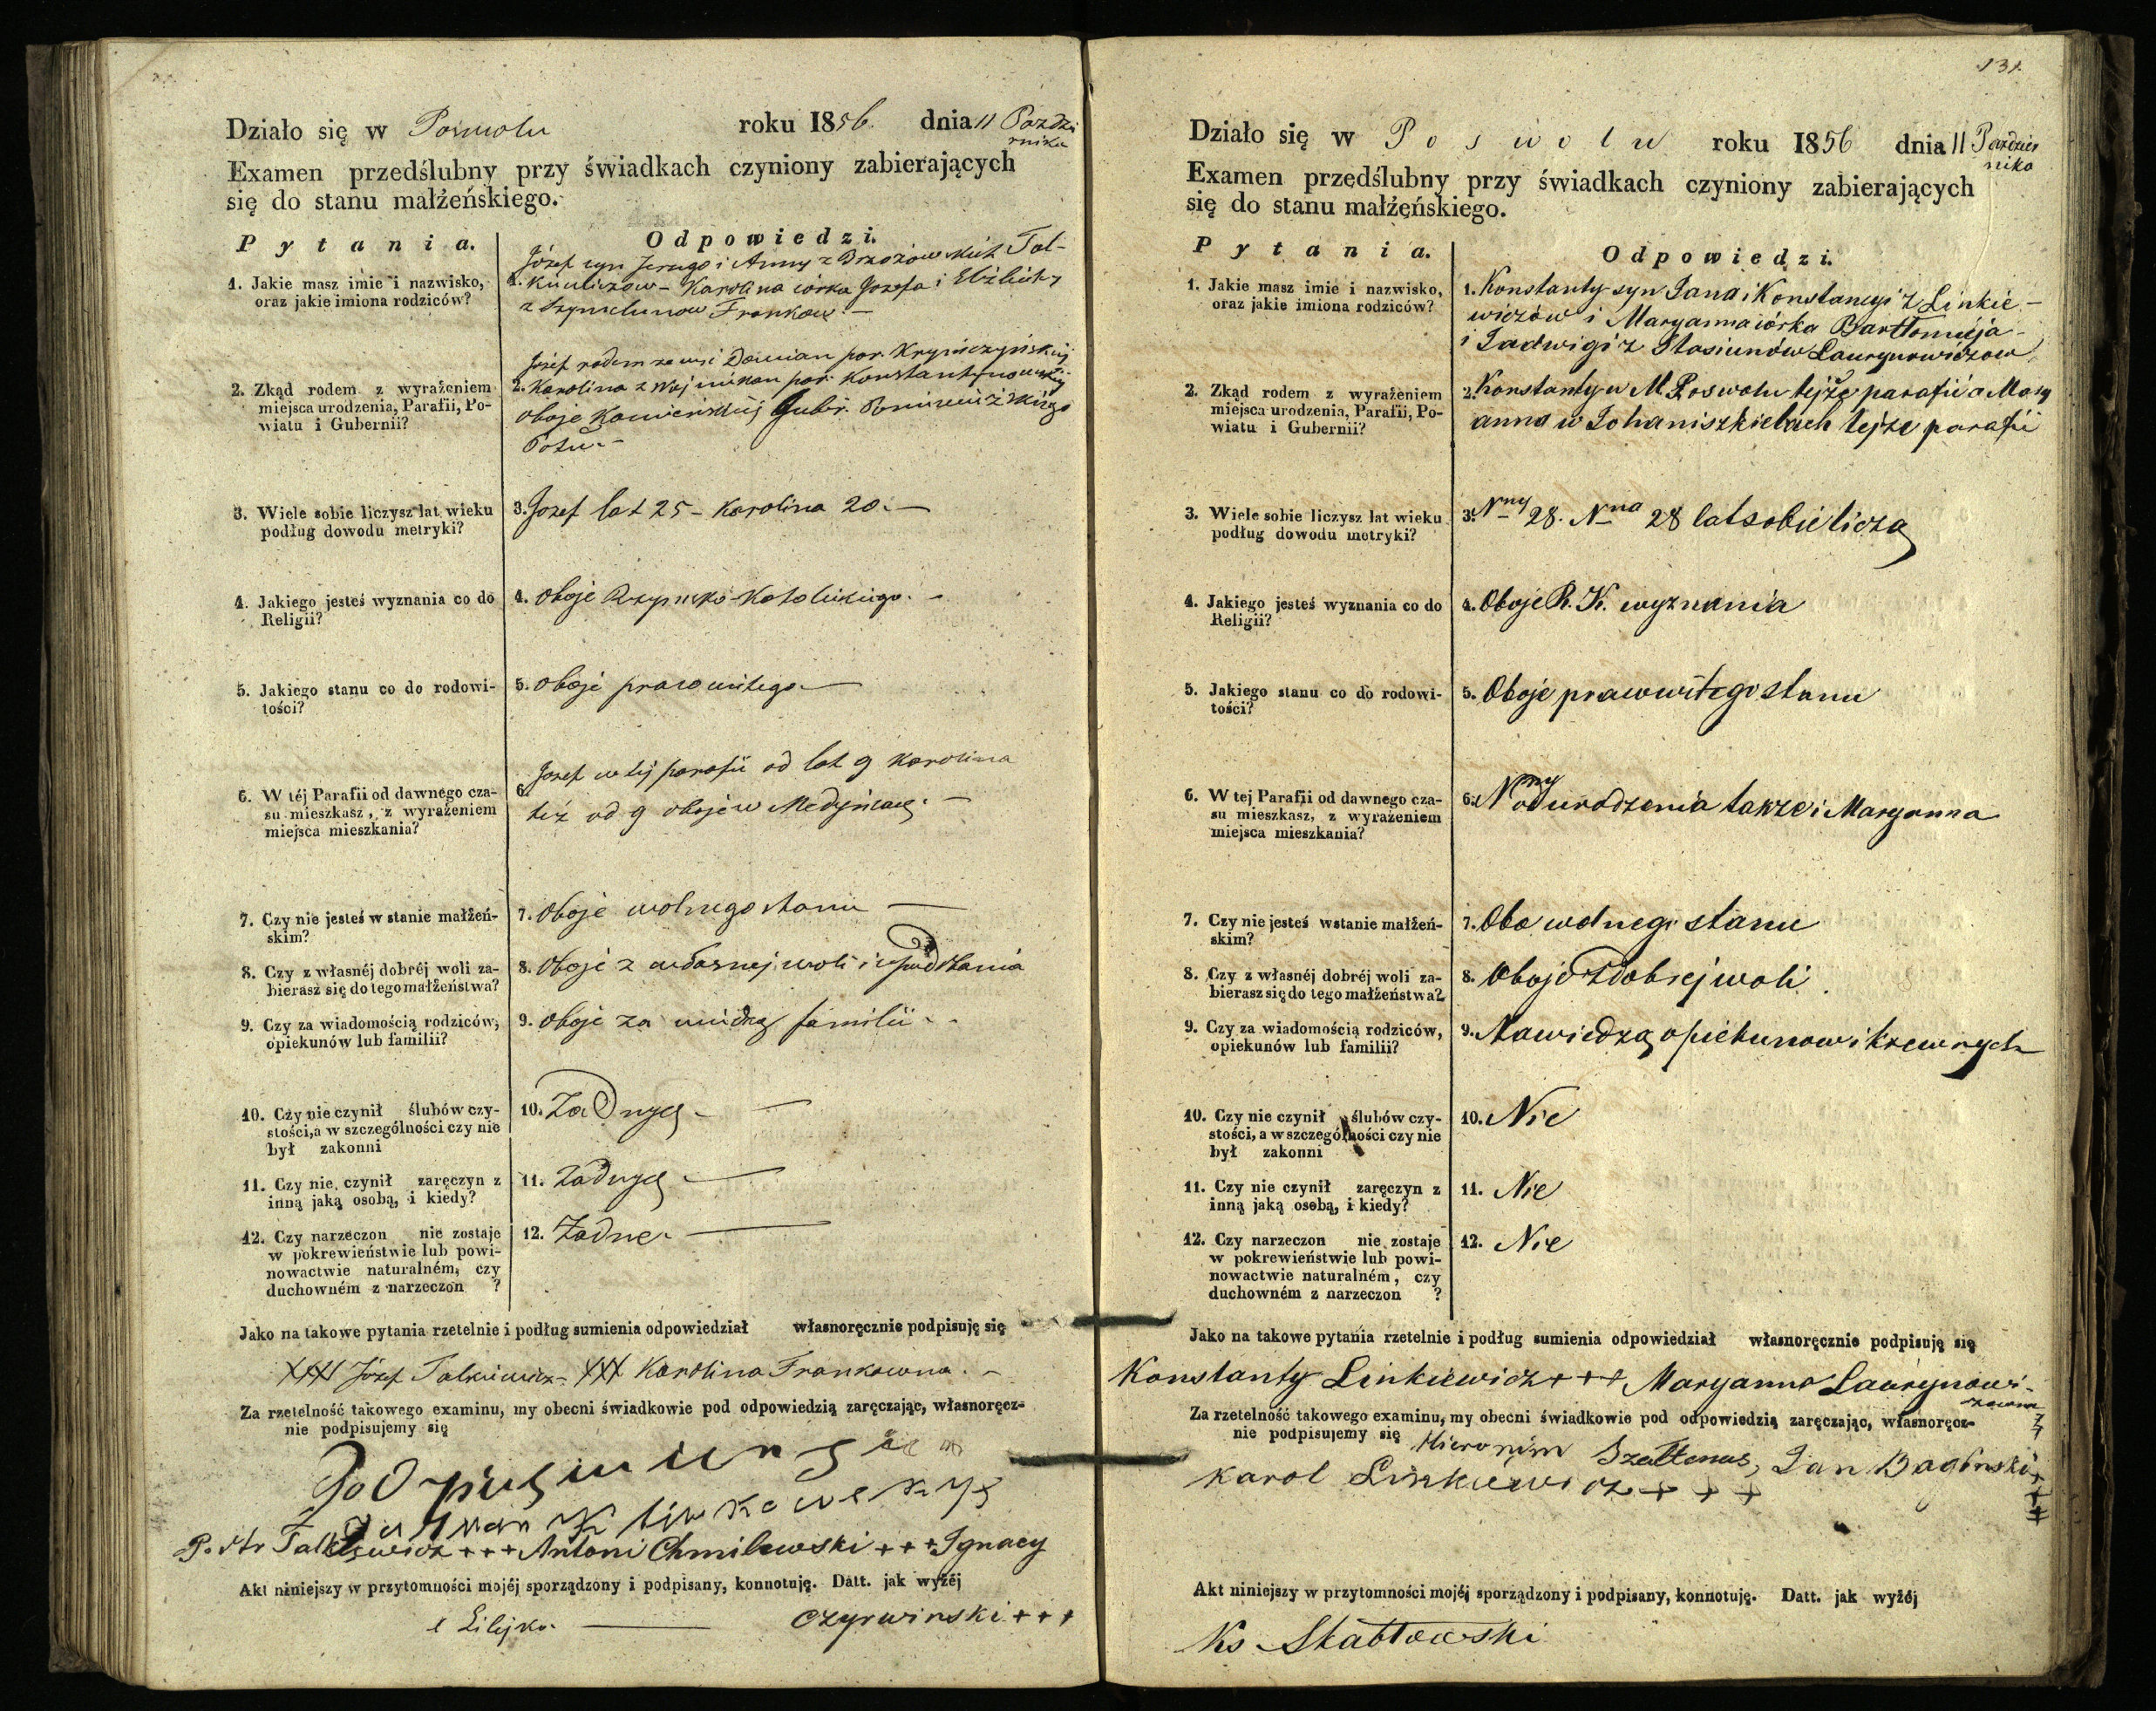 Działo się w Poswolu roku 1856. dnia 11 Paździ
rnika
Examen przedślubny przy świadkach czyniony zabierających
się do stanu małżeńskiego.
Pytania. Odpowiedzi.
1. Jakie masz imie i nazwisko,
oraz jakie imiona rodziców?
Józef syn Jerzego i Anny z Brzozowskich Tal-
1. Karolina córka Jozefa i Elżbiety
z Frankow. —
2. Zkąd rodem z wyrażeniem
miejsca urodzenia, Parafii, Po-
wiatu i Gubernii?
Józef rodem ze wsi par. Krynczyńskiej
2. Karolina z par. Konstantynowskiej
Oboje Kowieńskiej Guber. Poniewieżskiego
Potu. —
3. Wiele sobie liczysz lat wieku
podług dowodu metryki?
3. Jozef lat 25 – Karolina 20. —
4. Jakiego jesteś wyznania co do
Religii?
4. Oboje Rzymsko-Katolickiego. –
5. Jakiego stanu co do rodowi-
tości?
5. Oboje prawowitego —
6. W téj Parafii od dawnego cza-
su mieszkasz, z wyrażeniem
miejsca mieszkania?
Jozef w tej parafii od lat 9 Karolina
6. też od 9 oboje w —
7. Czy nie jesteś w stanie małżeń-
skim?
7. Oboje wolnego stanu —
8. Czy z własnéj dobréj woli za-
bierasz się do tego małżeństwa?
8. Oboje z własnej woli i upodobania
9. Czy za wiadomością rodziców,
opiekunów lub familii?
9. Oboje za wiedzą familii –
10. Czy nie czynił ślubów czy-
stości, a w szczególności czy nie
był zakonni
10. Żadnych —
11. Czy nie czynił zaręczyn z
inną jaką osobą, i kiedy?
11. Żadnych —
12. Czy narzeczon nie zostaje
w pokrewieństwie lub powi-
nowactwie naturalném, czy
duchowném z narzeczon ?
12. Żadne —
Jako na takowe pytania rzetelnie i podług sumienia odpowiedział własnoręcznie podpisuję się
XXX Józef Talkiewicz – XXX Karolina Frankowna. –
Za rzetelność takowego examinu, my obecni świadkowie pod odpowiedzią zaręczając, własnoręcz-
nie podpisujemy się
Piotr Talkiewicz + + + Antoni Chmilewski + + + Ignacy
Akt niniejszy w przytomności mojéj sporządzony i podpisany, konnotuję. Datt. jak wyżéj
Czyrwinski + + +
131.
Działo się w Poswolu roku 1856 dnia 11 Paździer
nika
Examen przedślubny przy świadkach czyniony zabierających
się do stanu małżeńskiego.
Pytania. Odpowiedzi.
1. Jakie masz imie i nazwisko,
oraz jakie imiona rodziców?
1. Konstanty syn Jana i Konstancyi z Linkie-
wiczów i Maryanna córka Bartłomieja
i Jadwigi z Stasiunów Laurynowiczow
2. Zkąd rodem z wyrażeniem
miejsca urodzenia, Parafii, Po-
wiatu i Gubernii?
2. Konstanty w M. Poswolu tejże parafii a Mary
anna w Johaniszkielach tejże parafii
3. Wiele sobie liczysz lat wieku
podług dowodu metryki?
3. Nny 28. Nna 28 lat sobie liczą
4. Jakiego jesteś wyznania co do
Religii?
4. Oboje R. K. wyznania
5. Jakiego stanu co do rodowi-
tości?
5. Oboje prawowitego stanu
6. W tej Parafii od dawnego cza-
su mieszkasz, z wyrażeniem
miejsca mieszkania?
6. Nny od urodzenia także i Maryanna
7. Czy nie jesteś w stanie małżeń-
skim?
7. Obo wolnego stanu
8. Czy z własnéj dobréj woli za-
bierasz się do tego małżeństwa?
8. Oboje z dobrej woli
9. Czy za wiadomością rodziców,
opiekunów lub familii?
9. Za wiedzą opiekunow i krewnych
10. Czy nie czynił ślubów czy-
stości, a w szczególności czy nie
był zakonni
10. Nie
11. Czy nie czynił zaręczyn z
inną jaką osobą, i kiedy?
11. Nie
12. Czy narzeczon nie zostaje
w pokrewieństwie lub powi-
nowactwie naturalném, czy
duchowném z narzeczon ?
12. Nie
Jako na takowe pytania rzetelnie i podług sumienia odpowiedział własnoręcznie podpisuję się
Konstanty Linkiewicz + + + Maryanna Laurynowi-
czowna
Za rzetelność takowego examinu, my obecni świadkowie pod odpowiedzią zaręczając, własnoręcz-
nie podpisujemy się Hieronim Szaltenas, Jan Baginski +
Karol Linkiewicz + + + + +
Akt niniejszy w przytomności mojéj sporządzony i podpisany, konnotuję. Datt. jak wyżéj
Ks Skabłowski